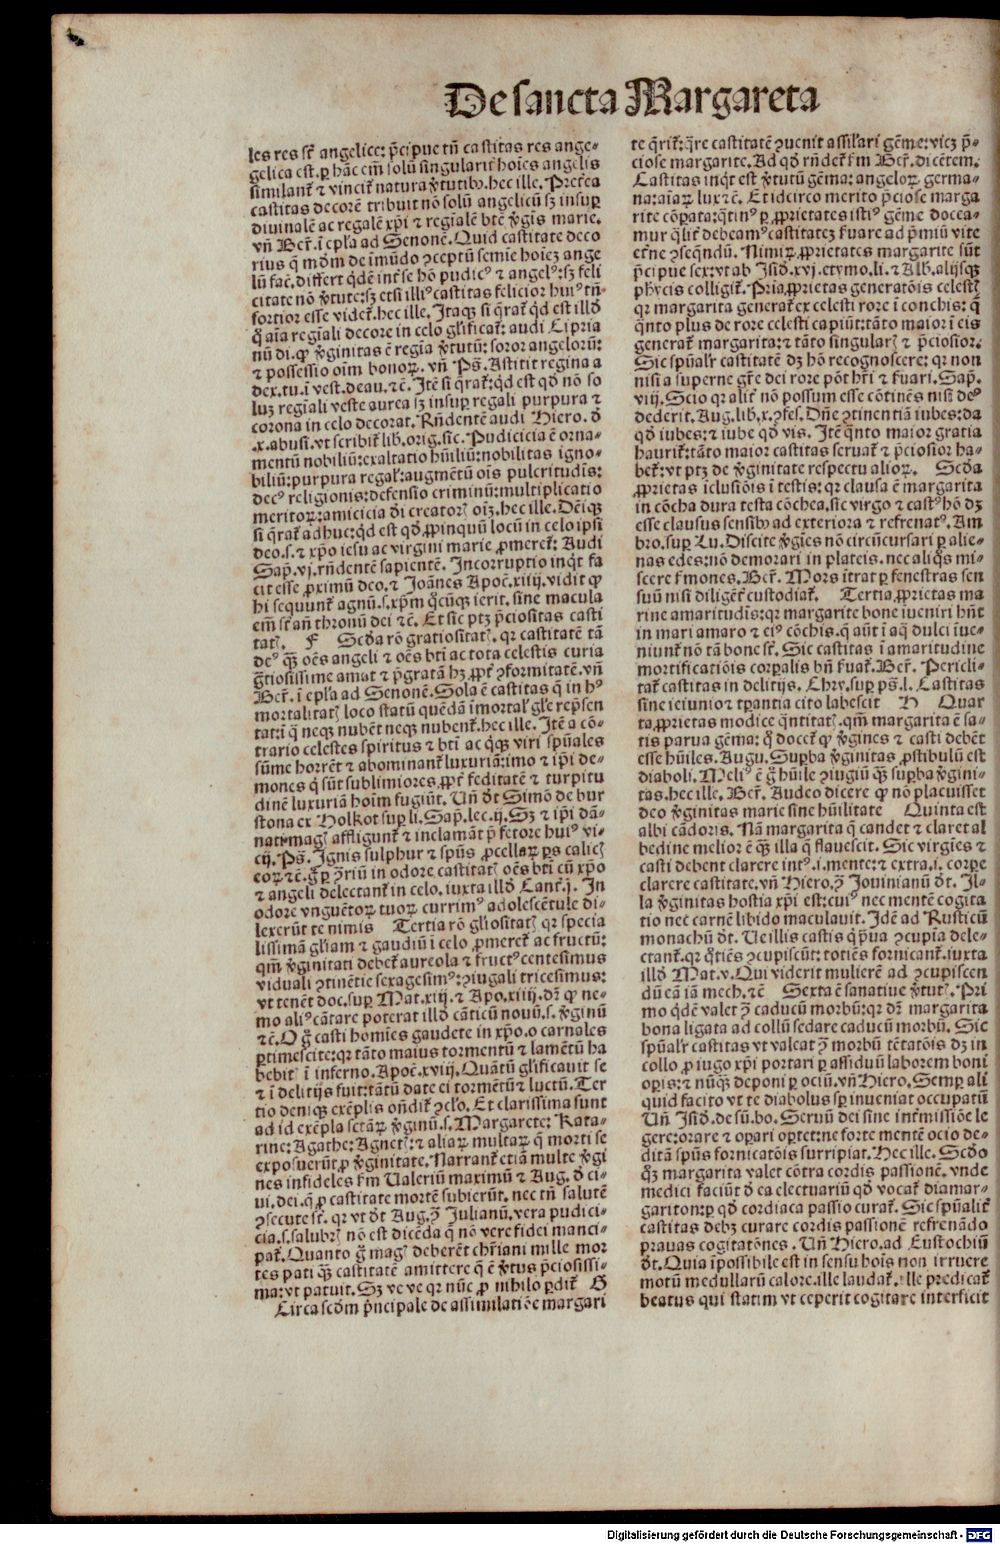 De sancta Margareta
les res st̄ angelice: p̄cipue tn̄ castitas res ange⸗
gelica est. ꝑ hāc eni͞m solū singularit̄ hoīes angelis
similant̄ ⁊ vincit̄ natura v̓tutibꝰ. hec ille. Preterea
castitas decorē tribuit nō solū angelicū sꝫ insuꝑ
diuinalē ac regalē xp̄i ⁊ regialē btē v̓gīs marie.
vn̄ Ber̄. ī epl̓a ad Senonē. Quid castitate deco
rius q̄ mūdm̄ de īmūdo ↄceptū semie hoīeꝫ ange
lū facē. differt qdē int̄ se hō pudicꝰ ⁊ angelꝰ: sꝫ feli
citate nō v̓tute: sꝫ etsi illiꝰ castitas felicior huiꝰ tn̄
fortior esse videt̄. hec ille. Itaqꝫ si q̄rat̄ qd est illd̓
q̓ aīa regiali decore in celo gl̓ificat̄: audi Cipria
nū di. ꝙ v̓ginitas ē regīa v̓tutū: soror angeloꝝ:
⁊ possessio oīm bonoꝝ. vn̄ Ps̄. Astitit regina a
dex. tu. ī vest. deau. ⁊ē. Itē si q̄rat̄: qd est qd̓ nō so
luꝫ regiali veste aurea sꝫ insuꝑ regali purpura ⁊
corona in celo decorat̄. Rn̄dentē audi Hiero. d̓
.x. abusi. vt scribit̄ lib. orig. sic. Pudicicia ē orna⸗
mentū nobiliū: exaltatio hūiliū: nobilitas igno⸗
biliū: purpura regal̓: augmētū oīs pulcritudīs:
decꝰ religionis: defensio criminū: multiplicatio
meritoꝝ: amicicia d̓i creatorꝭ oīꝫ. hec ille. Deīqꝫ
si q̄rat̄ adhuc: qd est qd̓ ꝓpinquū locū in celo ipsi
deo. s. ⁊ xp̄o iesu ac virgini marie ꝓmeret̄: Audi
Sap̄. vj. rn̄dentē sapientē. Incorruptio inq̄t fa
cit esse ꝓximū deo. ⁊ Joānes Apoc̄. xiiij. vidit ꝙ
hi sequunt̄ agnū. s. xp̄m q̓cūqꝫ ierit. sine macula
em̄ st̄ an̄ thronū dei ⁊ē. Et sic ptꝫ p̄ciositas casti
tatꝭ. F Scd̓a rō gratiositatꝭ. qr castitatē tā
deꝰ qꝫ oēs angeli ⁊ oēs bt̄i ac tota celestis curia
gr̄tiosissime amat ⁊ p̄gratā hꝫ ꝓpt̄ ↄformitatē. vn̄
Ber̄. ī epl̓a ad Senonē. Sola ē castitas q̄ in hꝰ
mortalitatꝭ loco statū quēdā imortal̓ gl̓e rep̄sen
tat: ī q̄ neqꝫ nubēt neqꝫ nubent̄. hec ille. Itē a cō⸗
trario celestes spiritus ⁊ bt̄i ac q̄qꝫ viri spūales
sūme horrēt ⁊ abominant̄ luxuriā: imo ⁊ ip̄i de⸗
mones q̄ sūt sublimiores, ꝓpt̄ feditatē ⁊ turpitu
dinē luxuriā hoīm fugiūt. Un̄ d̓t Simō de bur
stona ex Holkot sup̄ li. Sap̄. lec. ij. Sꝫ ⁊ ip̄i dā⸗
nati magꝭ affligunt̄ ⁊ inclamāt p̄ fetore huiꝰ vi⸗
cij. Ps̄. Ignis sulphur ⁊ spūs ꝓcellaꝝ ꝑs calicꝭ
eoꝝ ⁊ē. g̓ ꝑ ↄ̓riū in odore castitatꝭ oēs bt̄i cū xp̄o
⁊ angeli delectant̄ in celo. iuxta illd̓ Cant̄. j. In
odore vnguētoꝝ tuoꝝ currimꝰ adolescētule di⸗
lexerūt te nimis Tertia rō gl̓iositatꝭ qr specia
lissimā gl̓iam ⁊ gaudiū ī celo ꝓmeret̄ ac fructū:
qm̄ v̓ginitati debet̄ aureola ⁊ fructꝰ centesimus
viduali ↄtinētie sexagesimꝰ: ↄiugali tricesimus:
vt tenēt doc. sup̄ Mat. xiij. ⁊ Apo. xiiij. dr̄ ꝙ ne⸗
mo aliꝰ cātare poterat illd̓ cāticū nouū. s. v̓ginū
⁊ē. O g̓ casti homīes gaudete in xp̄o. o carnales
ꝑtimescite: qr tāto maius tormentū ⁊ lamētū ha
bebitꝭ ī inferno. Apoc̄. xviij. Quātū gl̓ificauit se
⁊ ī delitijs fuit: tātū date ei tormētū ⁊ luctū. Ter
tio deniqꝫ exēplis on̄dit̄ ↄcl̓o. Et clarissima sunt
ad id exēpla sctāꝝ v̓ginū. s. Margarete: Kata⸗
rine: Agathe: Agnetꝭ: ⁊ aliaꝝ multaꝝ q̄ morti se
exposuerūt ꝓ v̓ginitate. Narrant̄ etiā multe v̓gi
nes infideles f̄m Ualeriū maximū ⁊ Aug. d̓ ci⸗
ui. dei. q̄ ꝓ castitate mortē subierūt. nec tn̄ salutē
ↄsecute st̄. qr vt d̓t Aug. ↄ̓ Julianū. vera pudici⸗
cia. s. salubrꝭ nō est dicēda q̄ nō vere fidei manci⸗
pat̄. Quanto g̓ magꝭ deberēt chr̄iani mille mor
tes pati qꝫ castitatē amittere q̄ ē v̓tus p̄ciosissi⸗
ma: vt patuit. Sꝫ ve ve qr nūc ꝓ nihilo ꝑdit̄ G
Circa scd̓m p̄ncipale de assimilatiōe margari
te q̄rit̄: q̄re castitatē ↄuenit assil̓ari gēme: vicꝫ p̄⸗
ciose margarite. Ad qd̓ rn̄det̄ f̄m Ber̄. dicētem.
Castitas inq̄t est v̓tutū gēma: angeloꝝ germa⸗
na: aīaꝝ lux ⁊ē. Et idcirco merito p̄ciose marga
rite cōꝑata: q̄tinꝰ ꝑ ꝓprietates istiꝰ gēme docea⸗
mur qlit̄ debeamꝰ castitateꝫ ẜuare ad p̄miū vite
et̄ne ↄseq̄ndū. Nimiꝝ ꝓprietates margarite sūt
p̄cipue sex: vt ab Isid̓. xvj. etymo. li. ⁊ Alb. alijsqꝫ
phycis colligit̄. Pria ꝓprietas generatōis celestꝭ
qr margarita generat̄ ex celesti rore ī conchis: q̄
q̄nto plus de rore celesti capiūt: tāto maior ī eis
generat̄ margarita: ⁊ tāto singularꝭ ⁊ p̄ciosior.
Sic spūal̓r castitatē dꝫ hō recognoscere: qr non
nisi a superne gr̄e dei rore pōt hr̄i ⁊ ẜuari. Sap̄.
viij. Scio qr alit̄ nō possum esse cōtinēs nisi deꝰ
dederit. Aug. lib. x. ↄfes. Dn̄e ↄtinentiā iubes: da
qd̓ iubes: ⁊ iube qd̓ vis. Itē q̄nto maior gratia
haurit̄: tāto maior castitas seruat̄ ⁊ p̄ciosior ha⸗
bet̄: vt ptꝫ de v̓ginitate respectu alioꝝ. Scd̓a
ꝓprietas īclusiōis ī testis: qr clausa ē margarita
in cōcha dura testa cōchea. sic virgo ⁊ castꝰ hō dꝫ
esse clausus sensibꝰ ad exteriora ⁊ refrenatꝰ. Am
bro. suꝑ Lu. Discite v̓gīes nō circūcursari ꝑ alie⸗
nas edes: nō demorari in plateis. nec aliq̓s mi⸗
scere ẜmones. Ber̄. Mors ītrat ꝑ fenestras sen
suū nisi diligēt̄ custodiat̄. Tertia ꝓprietas ma
rine amaritudīs: qr margarite bone iueniri hn̄t
in mari amaro ⁊ eiꝰ cōchis. q̄ aūt ī aq̄ dulci iue⸗
niunt̄ nō tā bone st̄. Sic castitas ī amaritudine
mortificatiōis corꝑalis hn̄ ẜuat̄. Ber̄. Pericli⸗
tat̄ castitas in delitijs. Chry. suꝑ ps̄. l. Castitas
sine ieiunio ⁊ tꝑantia cito labescit H Quar
ta ꝓprietas modice q̄ntitatꝭ. qm̄ margarita ē sa⸗
tis parua gēma: q̓ docet̄ ꝙ v̓gines ⁊ casti debēt
esse hūiles. Augu. Suꝑba v̓ginitas ꝓstibulū est
diaboli. Meliꝰ ē g̓ hūile ↄiugiū qꝫ suꝑba v̓gini⸗
tas. hec ille. Ber̄. Audeo dicere ꝙ nō placuisset
deo v̓ginitas marie sine hūilitate Quinta est
albi cādoris. Nā margarita q̄ candet ⁊ claret al
bedine melior ē qꝫ illa q̄ flauescit. Sic virgīes ⁊
casti debent clarere intꝰ .i. mente: ⁊ extra .i. corꝑe
clarere castitate. vn̄ Hiero. ↄ̓ Jouinianū d̓t. Il⸗
la v̓ginitas hostia xp̄i est: cuiꝰ nec mentē cogita
tio nec carnē libido maculauit. Idē ad Rusticū
monachū d̓t. Ue illis castis q̓ p̄ua ↄcupīa dele⸗
ctant̄. qr q̓tiēs ↄcupiscūt: totiēs fornicant̄. iuxta
illd̓ Mat. v. Qui viderit mulierē ad ↄcupiscen
dū eā iā mech. ⁊ē Sexta ē sanatiue v̓tutꝭ. Pri
mo qdē valet ↄ̓ caducū morbū: qr dr̄ margarita
bona ligata ad collū sedare caducū morbū. Sic
spūal̓r castitas vt valeat ↄ̓ morbū tētatōis dꝫ in
collo ꝓ iugo xp̄i portari ꝑ assiduū laborem boni
oꝑis: ⁊ nūqꝫ deponi ꝑ ociū. vn̄ Hiero. Semꝑ ali
quid facito vt te diabolus sꝑ inueniat occupatū
Un̄ Isid̓. de sū. bo. Seruū dei sine int̄missiōe le
gere: orare ⁊ oꝑari oꝑtet: ne forte mentē ocio de⸗
ditā spūs fornicatōis surripiat. Hec ille. Scd̓o
q̓ꝫ margarita valet cōtra cordis passionē. vnde
medici faciūt d̓ ea electuariū qd̓ vocat̄ diamar⸗
gariton: ꝑ qd̓ cordiaca passio curat̄. Sic spūalit̄
castitas debꝫ curare cordis passionē refrenādo
prauas cogitatōnes. Un̄ Hiero. ad Eustochiū
d̓t. Quia īpossibile est in sensu hoīs non irruere
motū medullarū calore. ille laudat̄. ille predicat̄
beatus qui statim vt ceperit cogitare interficit
Digitalisierung gefördert durch die Deutsche Forschungsgemeinschaft - DFG